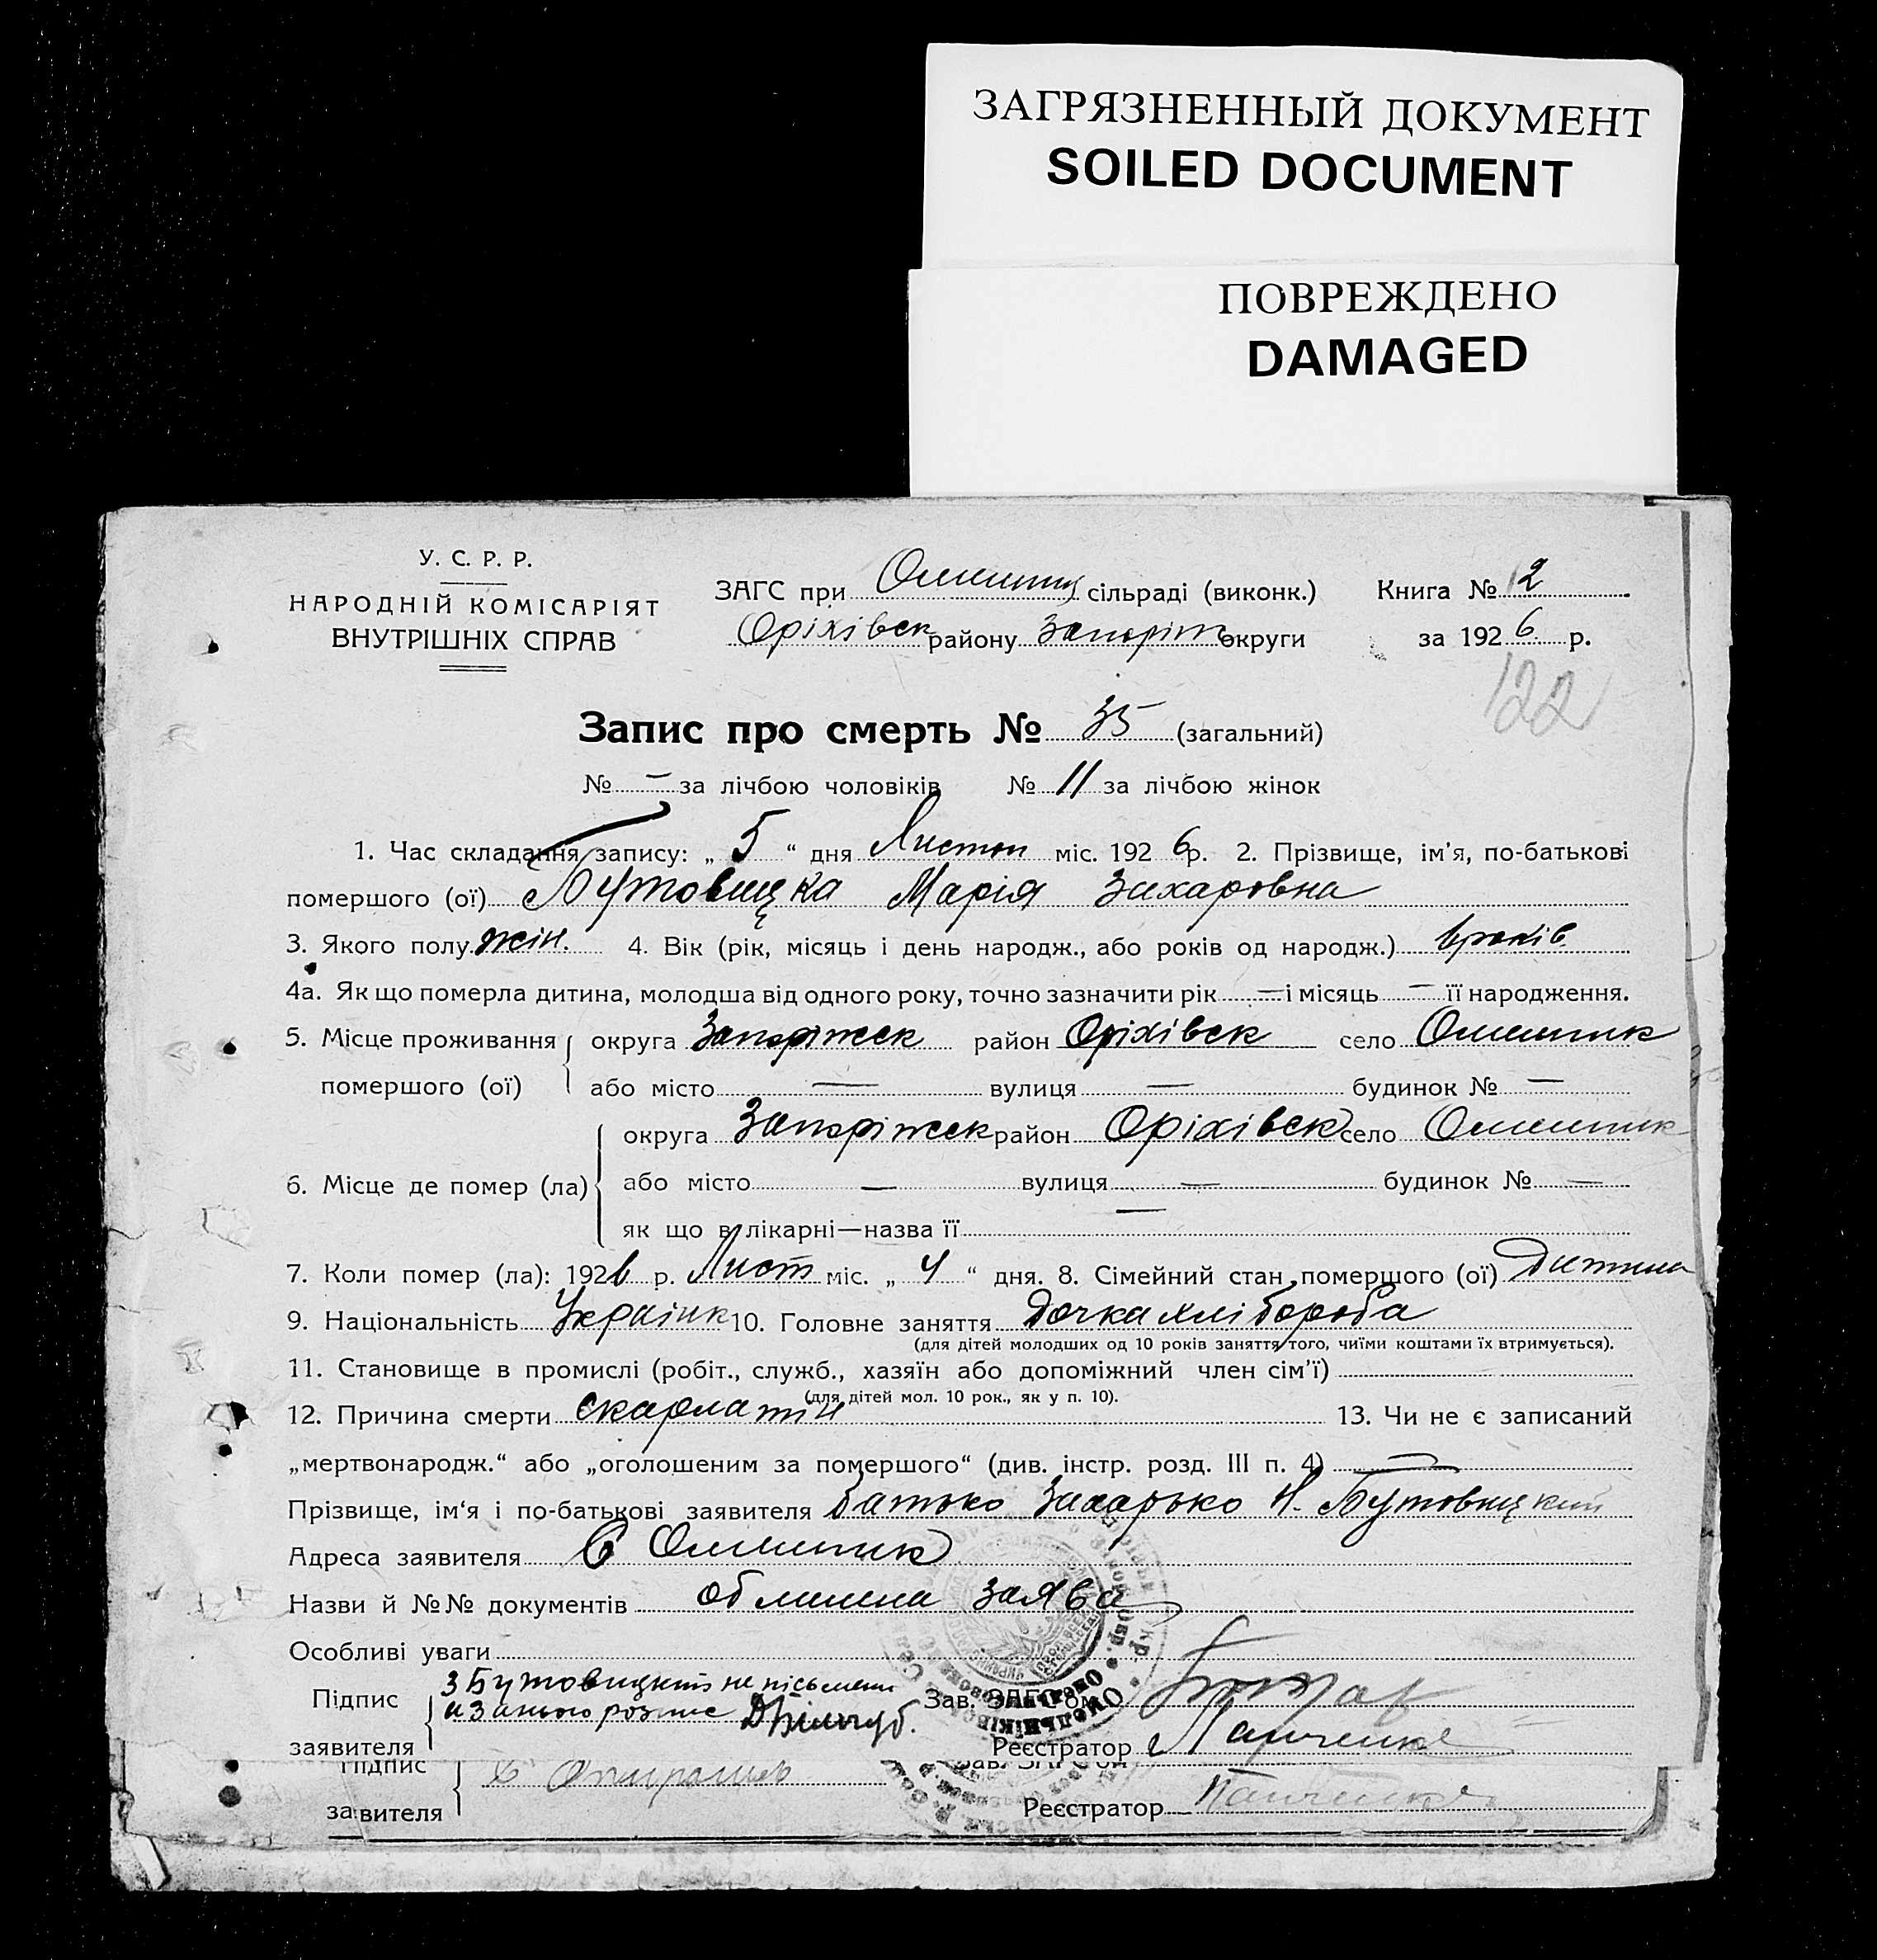 ЗАГРЯЗНЕННЫЙ ДОКУМЕНТ
SOILED DOCUMENT
ПОВРЕЖДЕНО
DAMAGED
У. С. Р. Р.
НАРОДНІЙ КОМІСАРІЯТ
ВНУТРІШНІХ СПРАВ
ЗАГС при сільраді (виконк.) Книга № 2
Оріхівск району Запоріж округи за 1926 р.
122
Запис про смерть № 35 (загальний)
№ — за лічбою чоловіків № 11 за лічбою жінок
1. Час складання запису: „ 5 “ дня Листоп міс. 1926 р. 2. Прізвище, ім’я, по-батькові
помершого (ої) Бутовицка Марія Захаровна
3. Якого полу жін. 4. Вік (рік, місяць і день народж., або років од народж.) 6 років
4а. Як що померла дитина, молодша від одного року, точно зазначити рік — і місяць — її народження.
5. Місце проживання округа Запоріжск район Оріхівск село Омельник
помершого (ої) або місто — вулиця — будинок № —
округа Запоріжск район Оріхівск село Омельник
6. Місце де помер (ла) або місто — вулиця — будинок № —
як що в лікарні—назва її —
7. Коли помер (ла): 1926 р. Лист міс. „ 4 “ дня. 8. Сімейний стан помершого (ої) Дитина
9. Національність Українк 10. Головне заняття дочка хлібороба
(для дітей молодших од 10 років заняття того, чиїми коштами їх втримується).
11. Становище в промислі (робіт., служб., хазяїн або допоміжний член сім’ї)
(для дітей мол. 10 рок., як у п. 10).
12. Причина смерти скарлатін 13. Чи не є записаний
„мертвонародж.“ або „оголошеним за помершого“ (див. інстр. розд. III п. 4) —
Прізвище, ім‘я і по-батькові заявителя Батько Захарько Н. Бутовицкий
Адреса заявителя С Омельник
Назви й №№ документів заява
Особливі уваги
З Бутовицкий не письмени
Підпис а за нього розпис Зав. ЗАГС‘ом
заявителя Реєстратор Панченко
Підпис Зав. ЗАГС‘ом
заявителя Реєстратор Панченко